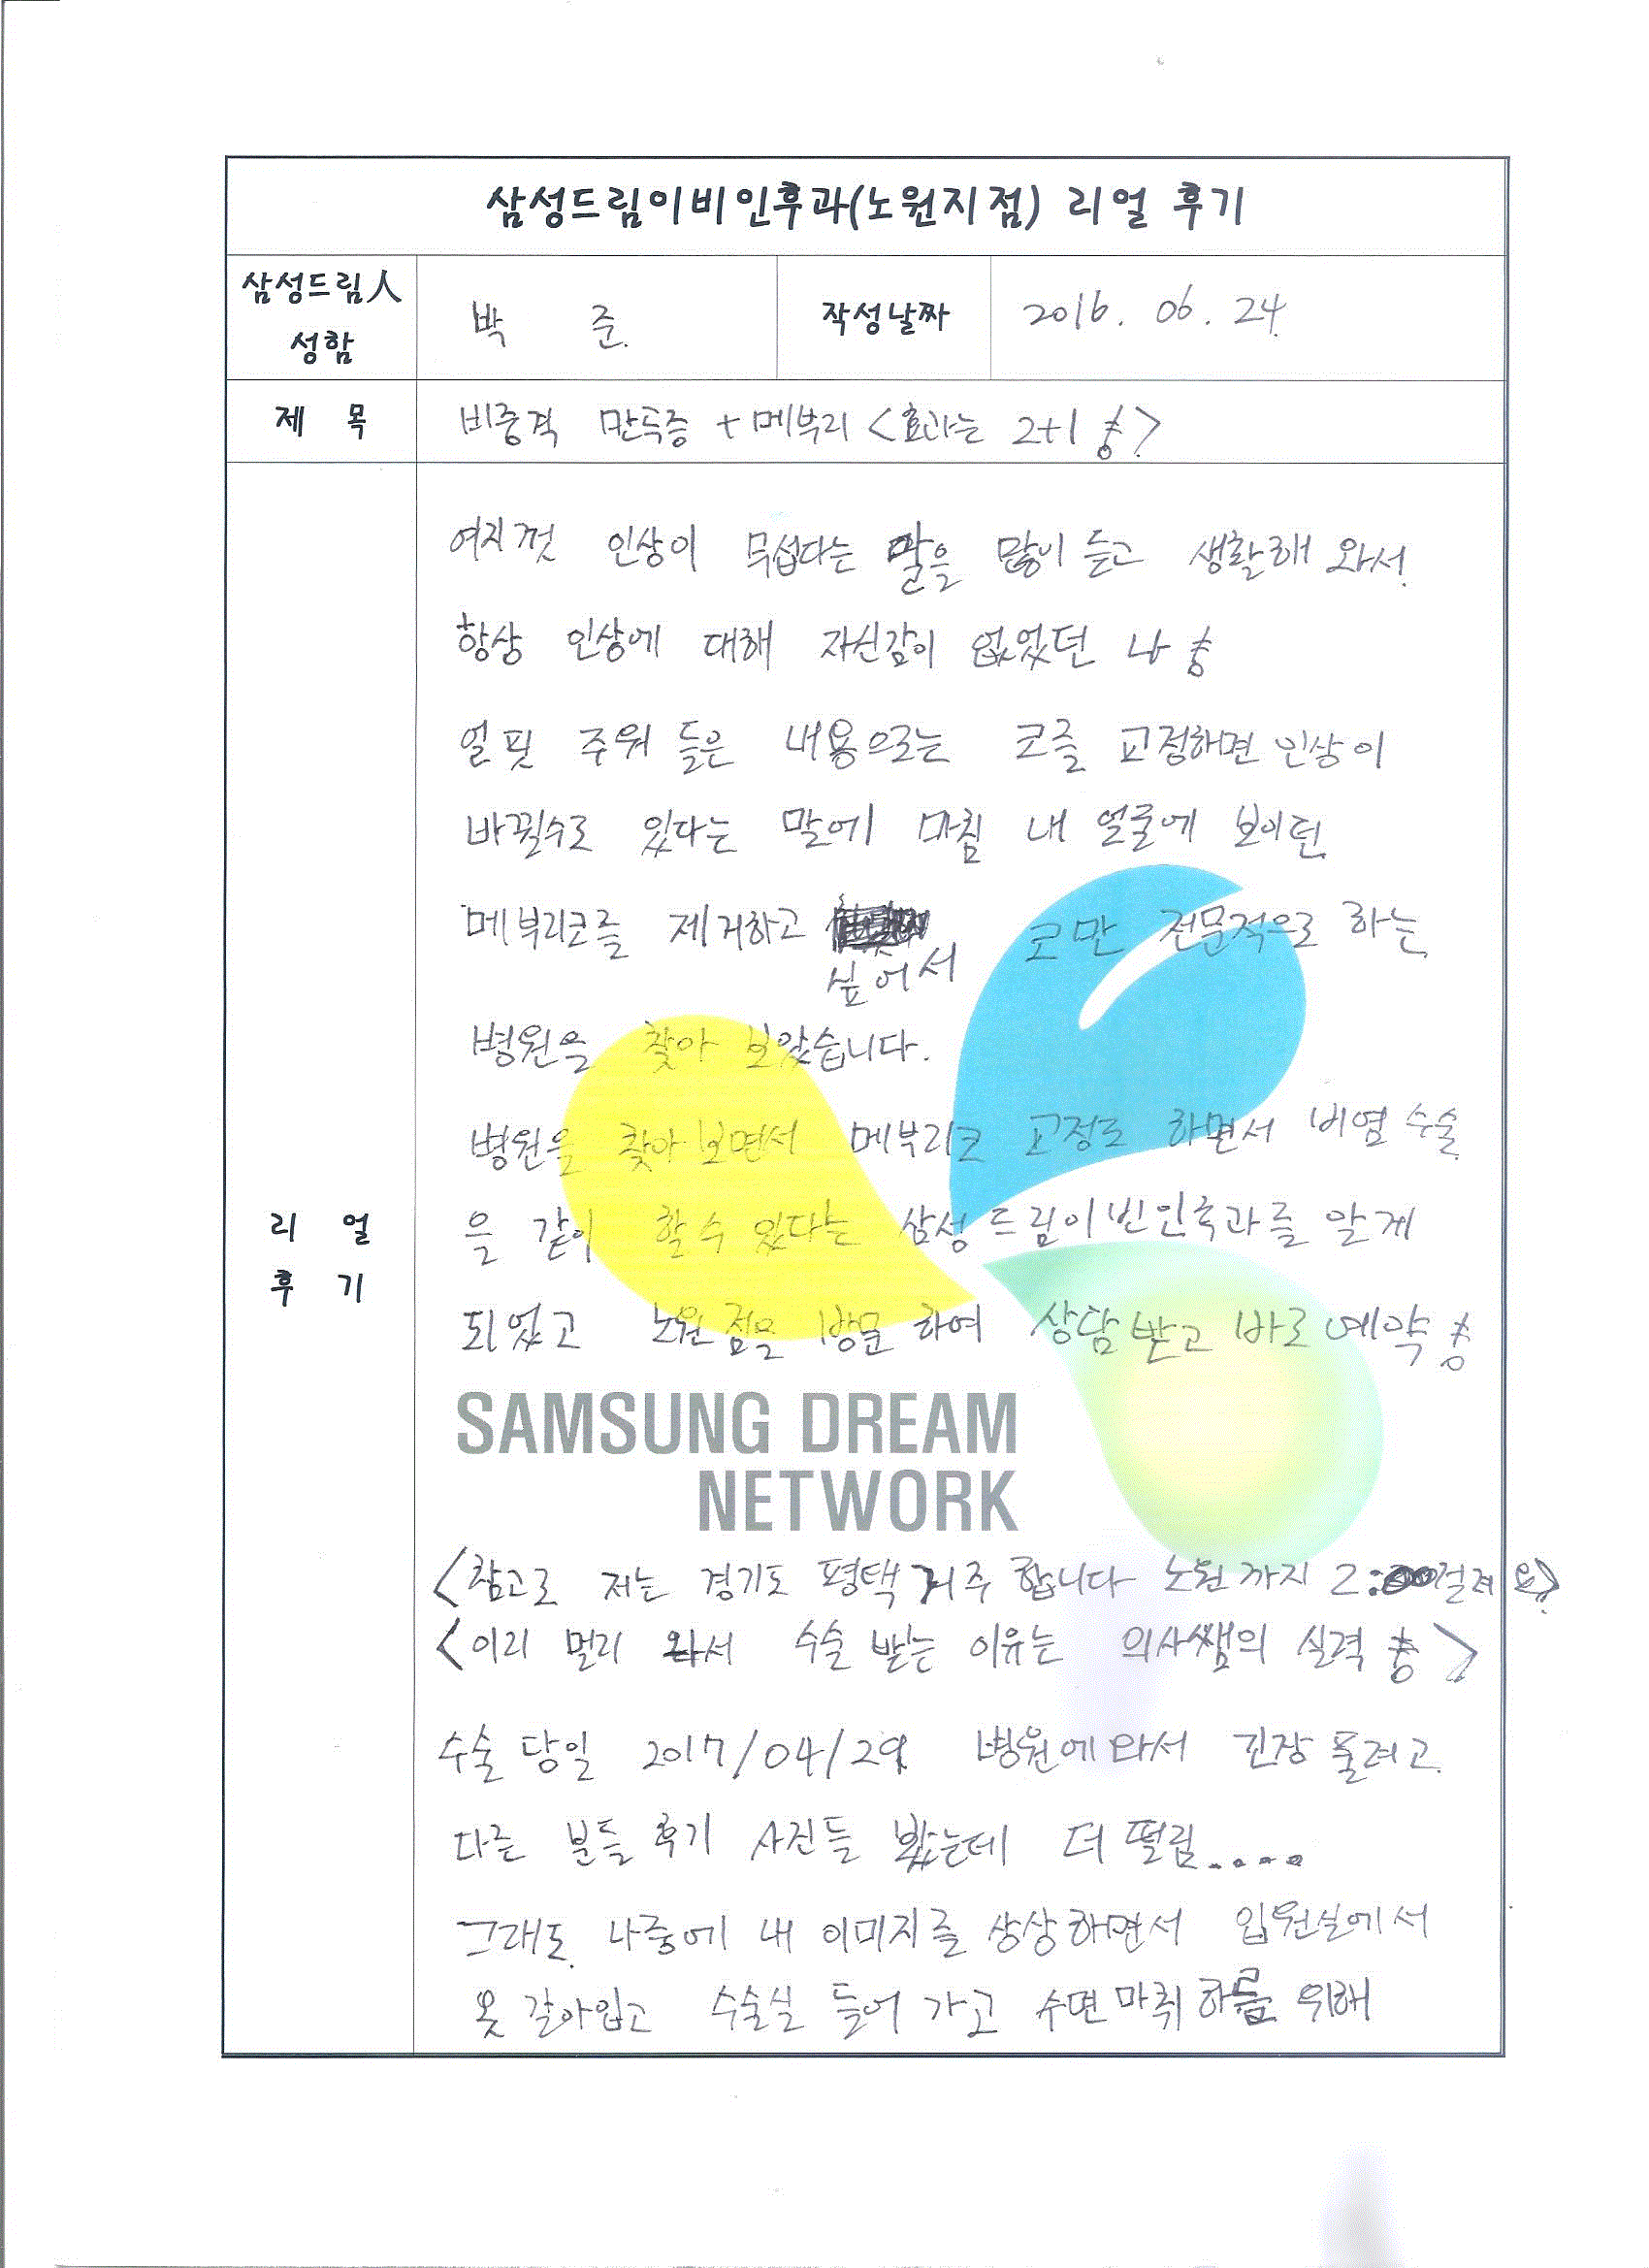 삼성드림이비인후과(노원지점) 리얼 후기
삼성드림人 성함
박 준.
작성날짜
2016. 06. 24.
제 목
비중격 만득증 + 메부리 <효과는 2+1 홋>
리 얼
후 기
여지껏 인상이 무섭다는 말을 많이 듣고 생활해 와서.
항상 인상에 대해 자신감이 없었던 나 홋
얼핏 주위 들은 내용으로는 코를 교정하면 인상이
바뀔수도 있다는 말에 마침 내 얼굴에 보이던
메부리코를 제거하고 싶어서 코만 전문적으로 하는
병원을 찾아 보았습니다.
병원을 찾아보면서 메부리코 교정도 하면서 비염 수술
을 같이 할수 있다는 삼성드림이빈인후과를 알게
되었고 노원점을 방문 하여 상담 받고 바로 예약 홋
SAMSUNG DREAM
NETWORK
<참고로 저는 경기도 평택거주 합니다 노원까지 2:00걸려요>
<이리 멀리 와서 수술 받는 이유는 의사쌤의 실력 홋>
수술 당일 2017/04/29 병원에 와서 긴장 풀려고
다른 분들 후기 사진들 봤는데 더 떨림....
그래도 나중에 내 이미지를 상상하면서 입원실에서
옷 갈아입고 수술실 들어 가고 수면마취 하를 위해